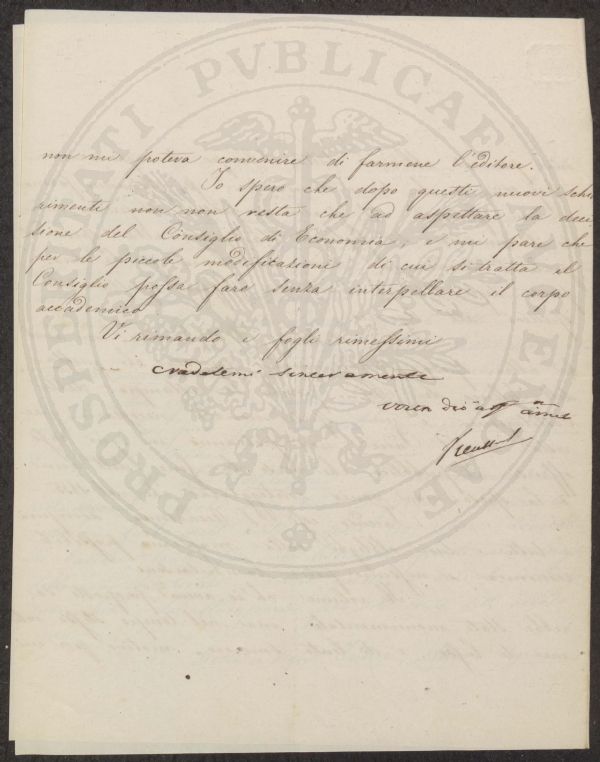 PROSPERITATI PVBLICAE AVGENDAE
non mi poteva convenire di farmene l'editore.
Io spero che dopo questi nuovi schia
rimenti non non resta che ad aspettare la deci
sione del Consiglio di Economia, e mi pare che
per le piccole modificazioni di cui si tratta il
Consiglio possa fare senza interpellare il corpo
accademico
Vi rimando i fogli rimessimi
credetemi sinceramente